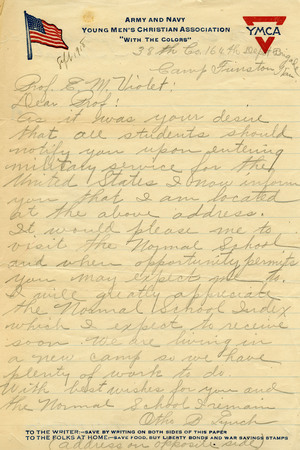 ARMY AND NAVY
YOUNG MEN'S CHRISTIAN ASSOCIATION
"WITH THE COLORS"
YMCA
38th Co. 164th Depot Brigade
Camp Funston
Prof. E. M. Violet:
Dear Prof:
As it was your desire
that all students should
notify you upon entering
military service for the
United States I may inform
you that I am located
at the above address.
It would please me to
visit the Normal School
and when opportunity permits
you may expect me to.
I will greatly appreciate
the Normal School Index
which I expect to receive
soon. We are living in
a new camp so we have
plenty of work to do.
With best wishes for you and
the Normal School I remain
Otto D. Lynch
TO THE WRITER:—SAVE BY WRITING ON BOTH SIDES OF THIS PAPER
TO THE FOLKS AT HOME:—SAVE FOOD, BUY LIBERTY BONDS AND WAR SAVINGS STAMPS
(address on opposite side)